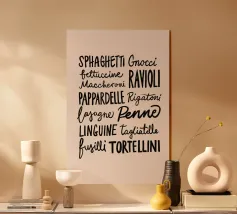 SPHAGHETTI Gnocci
fettuccine
Maccheroni RAVIOLI
PAPPARDELLE Rigatoni
lasagne Penne
LINGUINE tagliatelle
fusilli TORTELLINI